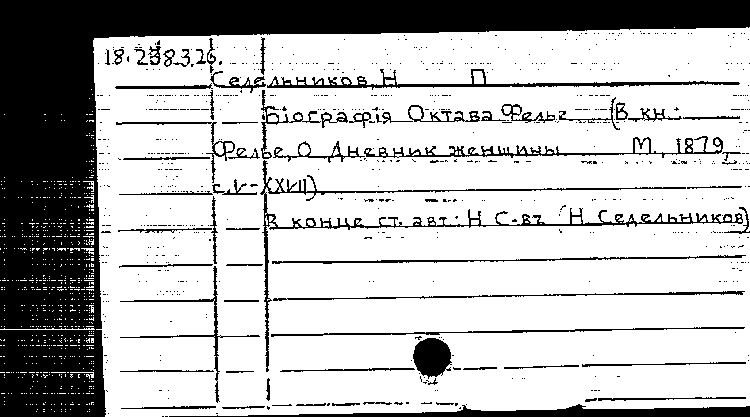 18.238.3.26.
Седельников, Н П
Біографія Октава Фелье (В кн.:
Фелье, О. Дневник женщины М., 1879,
с. V-XXVII).
В конце ст. авт.: Н. С-въ (Н. Седельников)